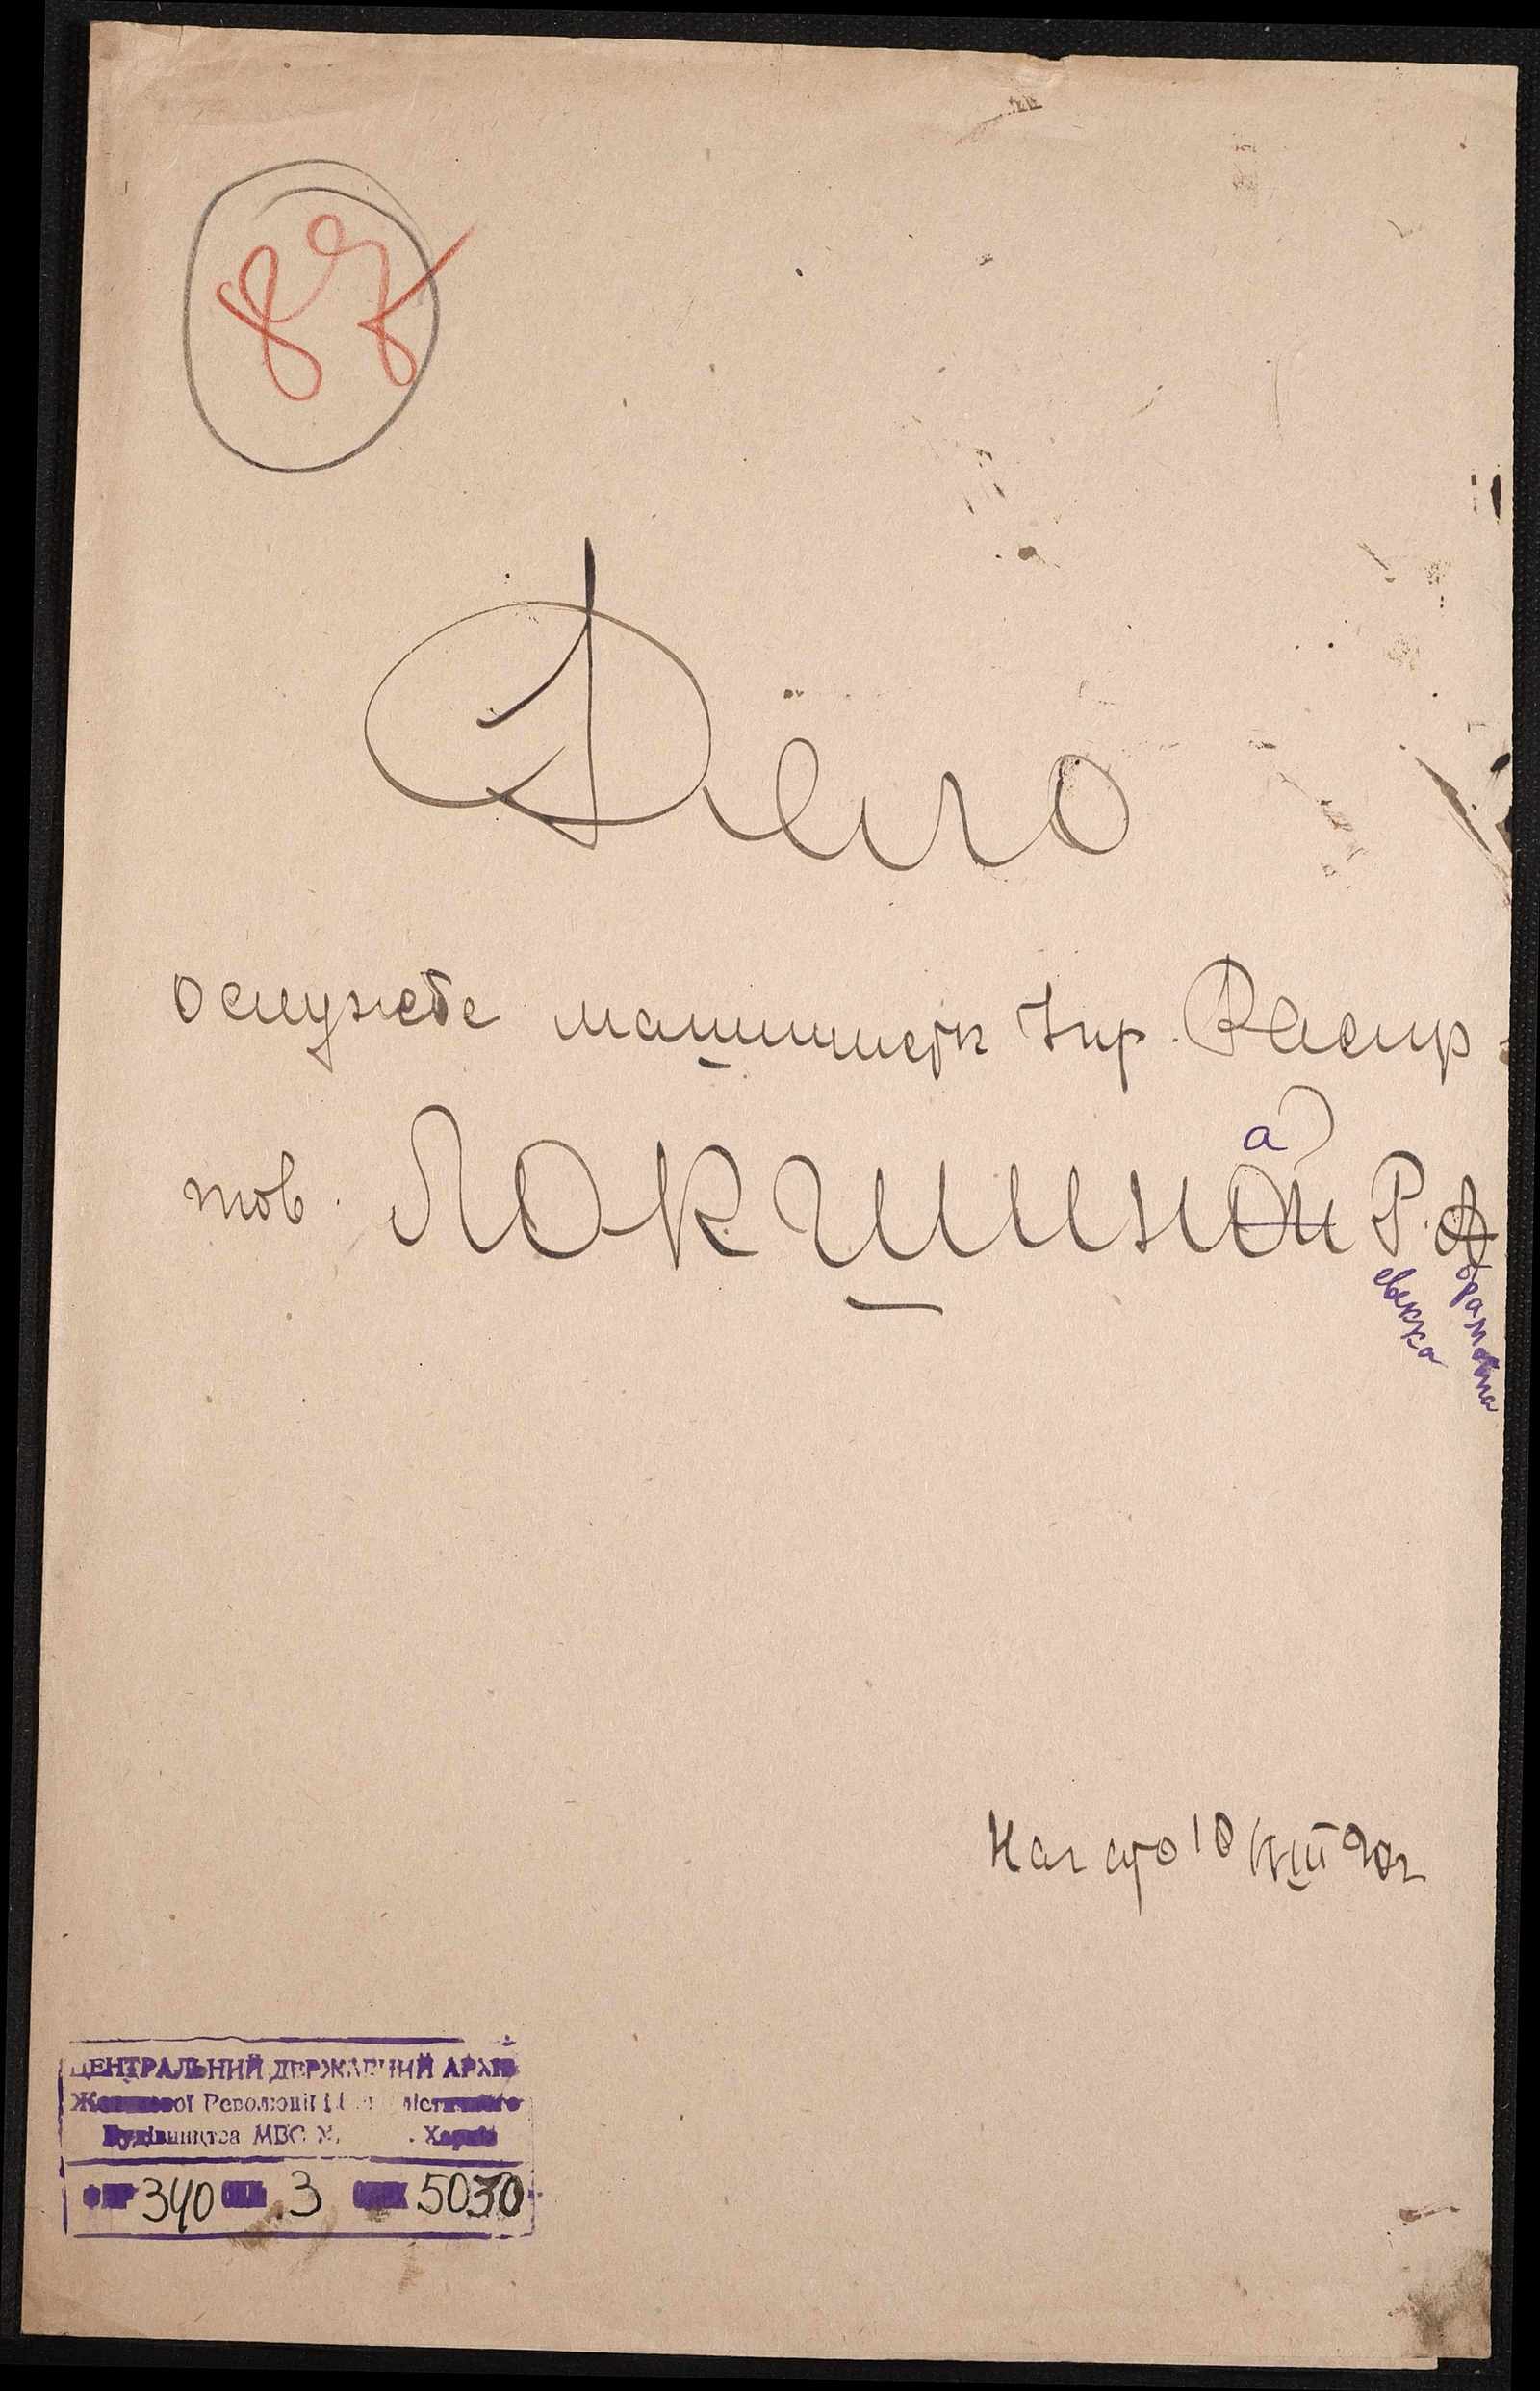 87
Дело
о службе машинистк Упр. Распр.
тов. Локшиной Р. А
а
евекка
брамовна
Начато 10/VIII 20г
ЦЕНТРАЛЬНИЙ ДЕРЖАВНИЙ АРХІВ
Жовтневої Революції і Соціалістичного
Будівництва МВС У. . Харків
ФР 340 ОП. 3 ОД.ЗБ 5030